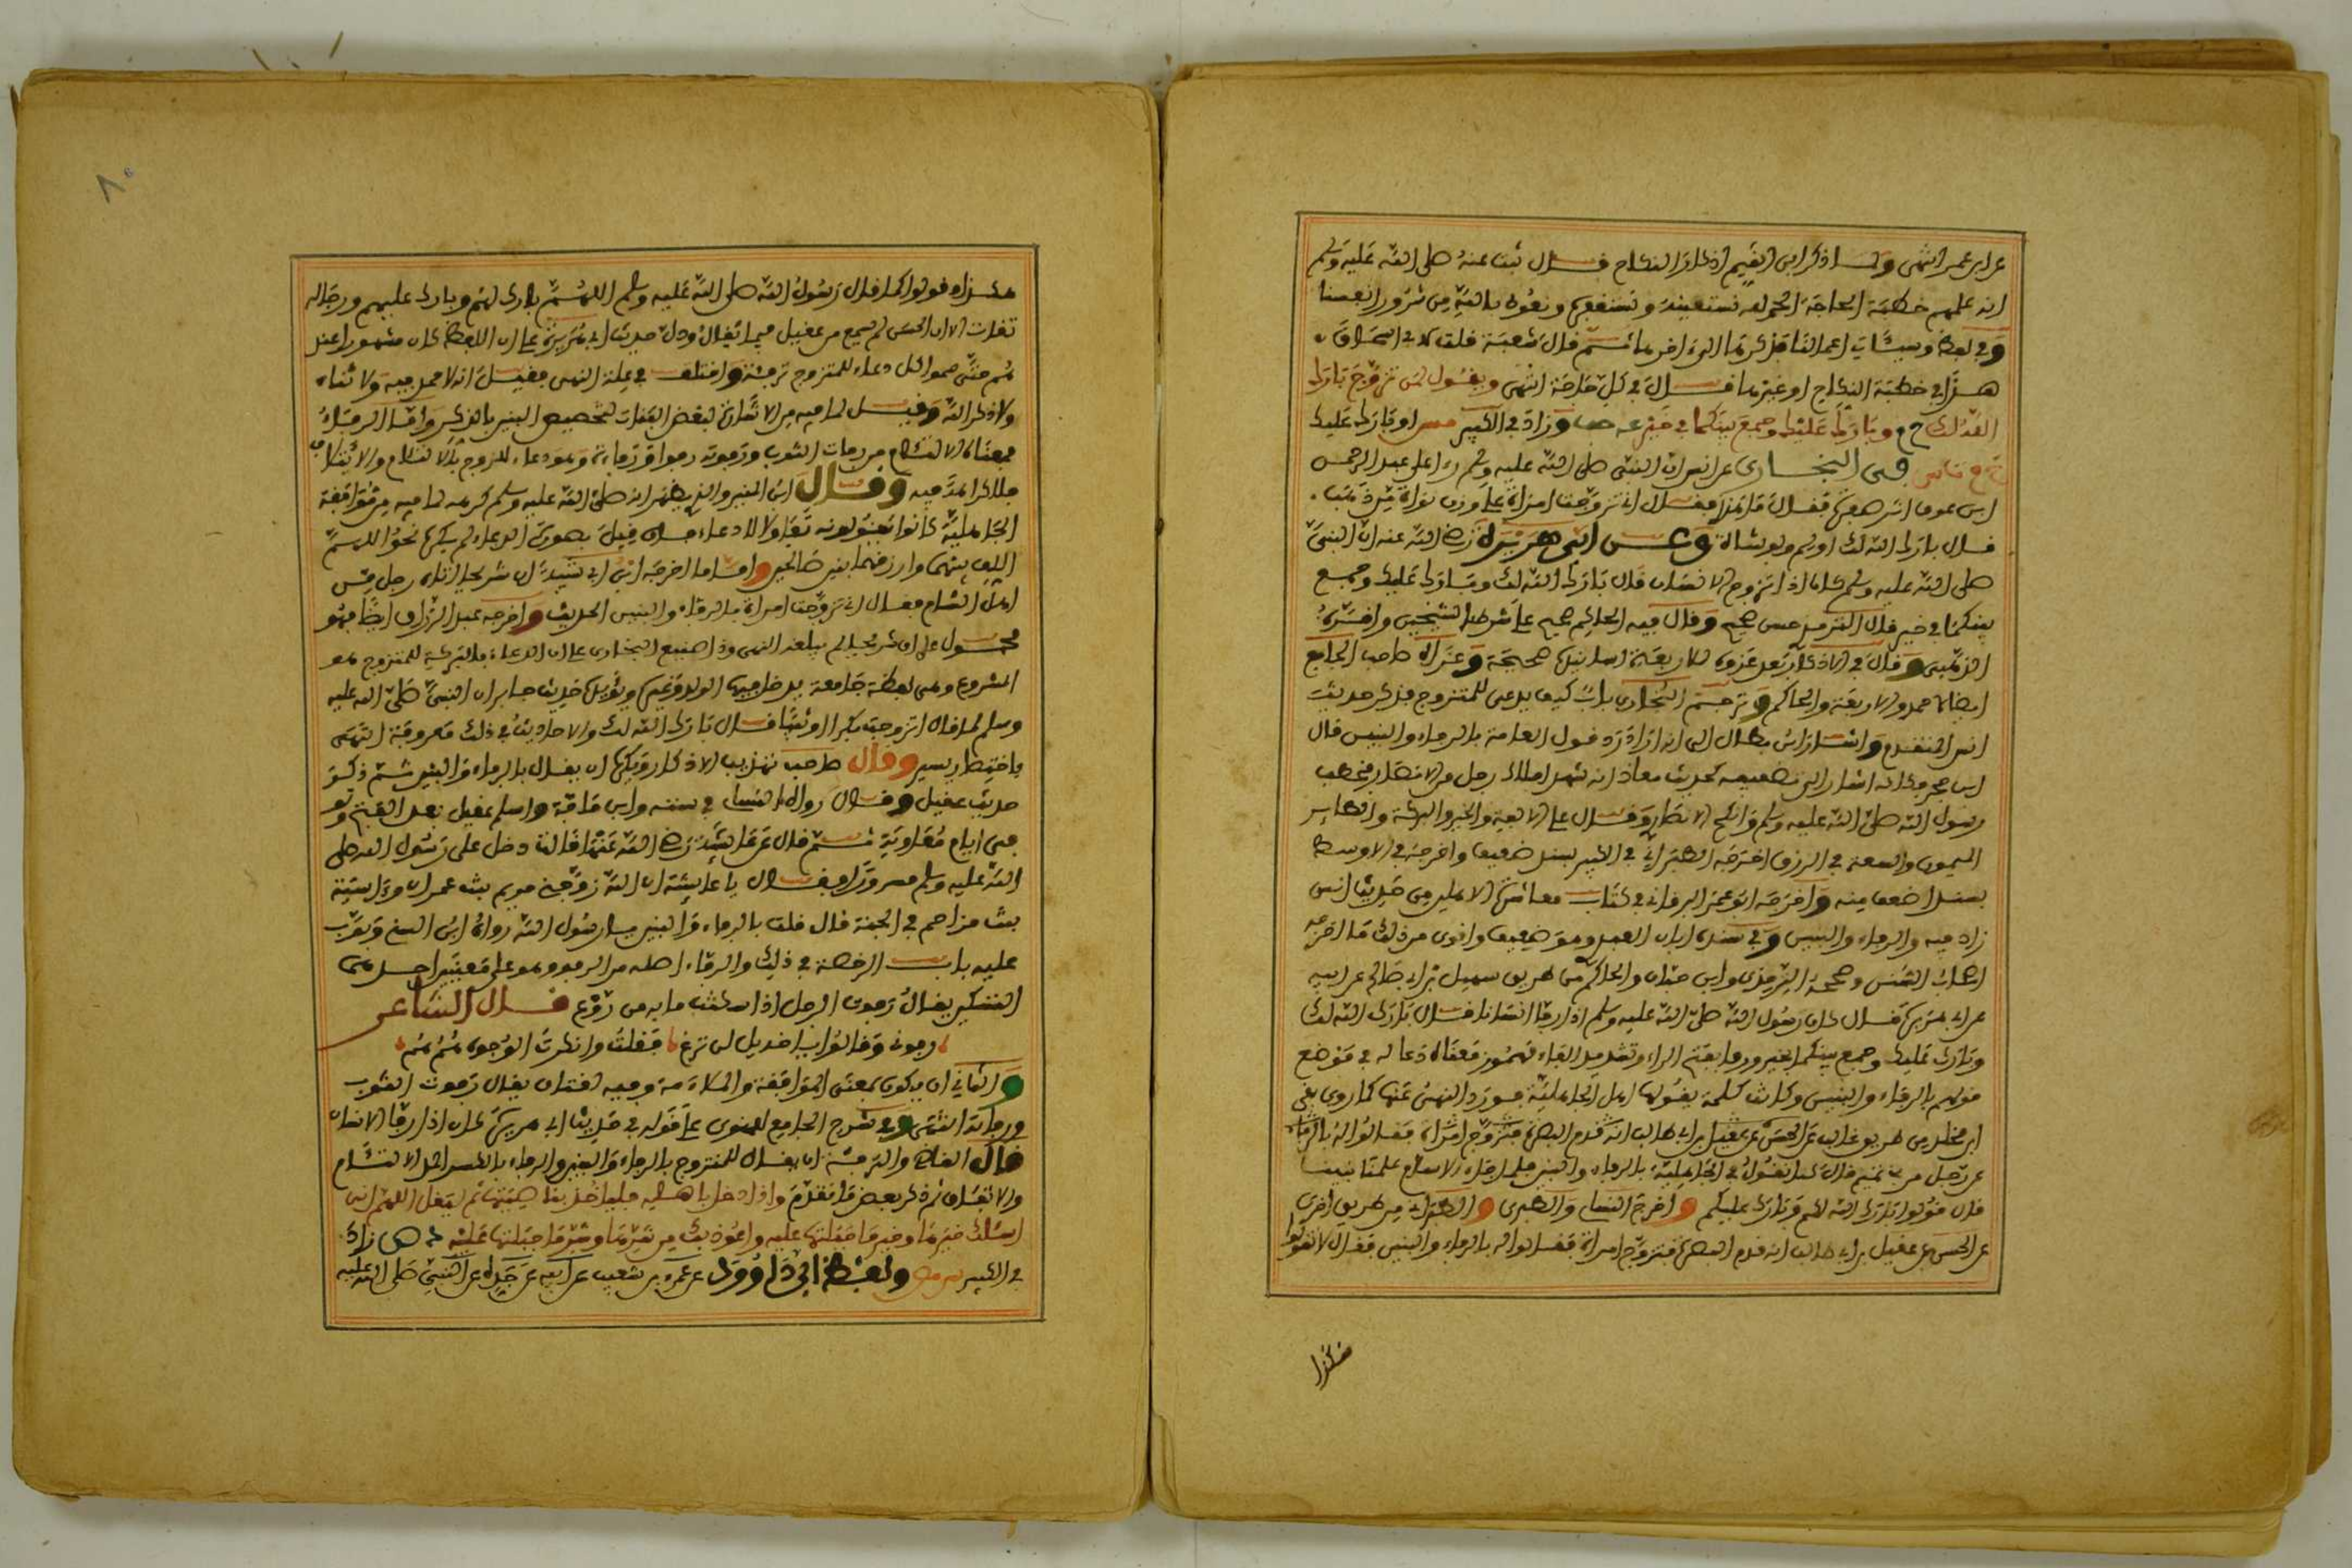 عن ابن عمر انتهى ولما ذكر ابن القيم اذكار النكاح قال ثبت عنه صلى الله عليه وسلم
انه علمهم خطبة الحاجة الحمد لله نستعينه ونستغفره ونعوذ بالله من شرور انفسنا
وفي لفظ وسيئات اعمالنا فذكرها الى اخرها ثم قال شعبة قلت لابي اسحاق
هذا في خطبة النكاح او غيرها قال في كل حاجة انتهى ويقول لمن تزوج بارك
الله لك خ م وبارك عليك وجمع بينكما في خير عه حب وزاد في الكبير مس او بارك عليك
خ م ت س ق في البخاري عن انس ان النبي صلى الله عليه وسلم رءا على عبد الرحمن
ابن عوف اثر صفرة فقال ما هذا فقال اني تزوجت امراة على وزن نواة من ذهب
قال بارك الله لك اولم ولو بشاة وعن ابي هريرة رضي الله عنه ان النبي
صلى الله عليه وسلم كان اذا تزوج الانسان قال بارك الله لك وبارك عليك وجمع
بينكما في خير قال الترمذي حسن صحيح وقال فيه الحاكم صحيح على شرط الشيخين واقره
الذهبي وقال في الاذكار بعد عزوه للاربعة اسانيده صحيحة وعزاه صاحب الجامع
ايضا لاحمد والاربعة والحاكم وترجم البخاري باب كيف يدعى للمتزوج فذكر حديث
انس المتقدم واشار ابن بطال الى انه اراد رد قول العامة بالرفاء والبنين قال
ابن حجر وكانه اشار الى تضعيف حديث معاذ انه شهد املاك رجل من الانصار فخطب
رسول الله صلى الله عليه وسلم وانكح الانصاري وقال على الالفة والخير والبركة والطاير
الميمون والسعة في الرزق اخرجه الطبراني في الكبير بسند ضعيف واخرجه في الاوسط
بسند اضعف منه واخرجه ابو عمر البرقاني في كتاب معاشرة الاهلين من حديث انس
زاد فيه والرفاء والبنين وفي سنده ابان العبدي وهو ضعيف واقوى من ذلك ما اخرجه
اصحاب السنن وصححه الترمذي وابن حبان والحاكم من طريق سهيل بن ابي صالح عن ابيه
عن ابي هريرة قال كان رسول الله صلى الله عليه وسلم اذا رفأ انسانا قال بارك الله لك
وبارك عليك وجمع بينكما بخير ورفأ بفتح الراء وتشديد الفاء مهموز معناه دعا له في موضع
قولهم بالرفاء والبنين وكانت كلمة يقولها اهل الجاهلية فورد النهي عنها كما روى بقي
ابن مخلد من طريق غالب عن الحسن عن عقيل بن ابي طالب انه قدم البصرة فتزوج امراة فقالوا له بالرفاء
عن رجل من بني تميم قال كنا نقول في الجاهلية بالرفاء والبنين فلما جاء الاسلام علمنا نبينا
قال قولوا بارك الله لكم وبارك عليكم واخرج النسائي والطبري والطبراني من طريق اخرى
عن الحسن عن عقيل بن ابي طالب انه قدم البصرة فتزوج امراة فقالوا له بالرفاء والبنين فقال لا تقولوا
هكذا
٨٠
هكذا وقولوا كما قال رسول الله صلى الله عليه وسلم اللهم بارك لهم وبارك عليهم ورجاله
ثقات الا ان الحسن لم يسمع من عقيل فيما يقال ودل حديث ابي هريرة على ان اللفظ كان مشهورا عند
هم حتى سموا كل دعاء للمتزوج ترفئة واختلف في علة النهي فقيل انه لا حمد فيه ولا ثناء
ولا ذكر الله وقيل لما فيه من الاشارة لبغض البنات لتخصيص البنين بالذكر واما الرفاء
فمعناه الالتئام من رفات الثوب ورفوته رفوا ورفاء وهو دعاء للزوج بالالتئام والائتلاف
فلا كراهة فيه وقال ابن المنير والذي يظهر انه صلى الله عليه وسلم كره لما فيه من موافقة
الجاهلية كانوا يقولونه تفاولا لا دعاء فلو قيل بصورة الدعاء لم يكره نحو اللهم
الف بينهما وارزقهما بنين صالحين واما ما اخرجه ابن ابي شيبة ان شريحا اتاه رجل من
اهل الشام فقال اني تزوجت امراة بالرفاء والبنين الحديث واخرجه عبد الرزاق ايضا فهو
محمول على ان شريحا لم يبلغه النهي وذا صنيع البخاري على ان الدعاء بالبركة للمتزوج هو
المشروع وهي لفظة جامعة يدخل فيها الولد وغيره ويؤيده حديث جابر ان النبي صلى الله عليه
وسلم لما قال اتزوجت بكرا او ثيبا قال بارك الله لك والاحاديث في ذلك معروفة انتهى
باختصار يسير وقال صاحب تهذيب الاذكار ويكره ان يقال بالرفاء والبنين ثم ذكر
حديث عقيل وقال رواه النسائي في سننه وابن ماجة واسلم عقيل بعد الفتح وتو
في ايام معاوية ثم قال عن عايشة رضي الله عنها قالت دخل على رسول الله صلى
الله عليه وسلم مسرورا فقال يا عايشة ان الله زوجني مريم بنت عمران واسية
بنت مزاحم في الجنة قال قلت بالرفاء والبنين يا رسول الله رواه ابن السني وبوب
عليه باب الرخصة في ذلك والرفاء اصله من الرفو وهو على معنيين احدهما
التسكين يقال رفوت الرجل اذا سكنت ما به من روع قال الشاعر
رفوني وقالوا يا خويلد لن ترع فقلت وانكرت الوجوه هم هم
والثاني ان يكون بمعنى الموافقة والملاءمة وفيه لغتان يقال رفوت الثوب
ورفاته انتهى وفي شرح الجامع للمنوي على قوله في حديث ابي هريرة كان اذا رفأ الانسان
قال القاضي والترفئة ان يقال للمتزوج بالرفاء والبنين والرفاء بالكسر والمد الالتئام
والاتفاق ثم ذكر بعض ما تقدم واذا دخل باهله فلياخذ بناصيتها ثم ليقل اللهم اني
اسئلك خيرها وخير ما جبلتها عليه واعوذ بك من شرها وشر ما جبلتها عليه د ص زاد
في الكبير س مص ولفظ ابي داوود عن عمرو بن شعيب عن ابيه عن جده عن النبي صلى الله عليه